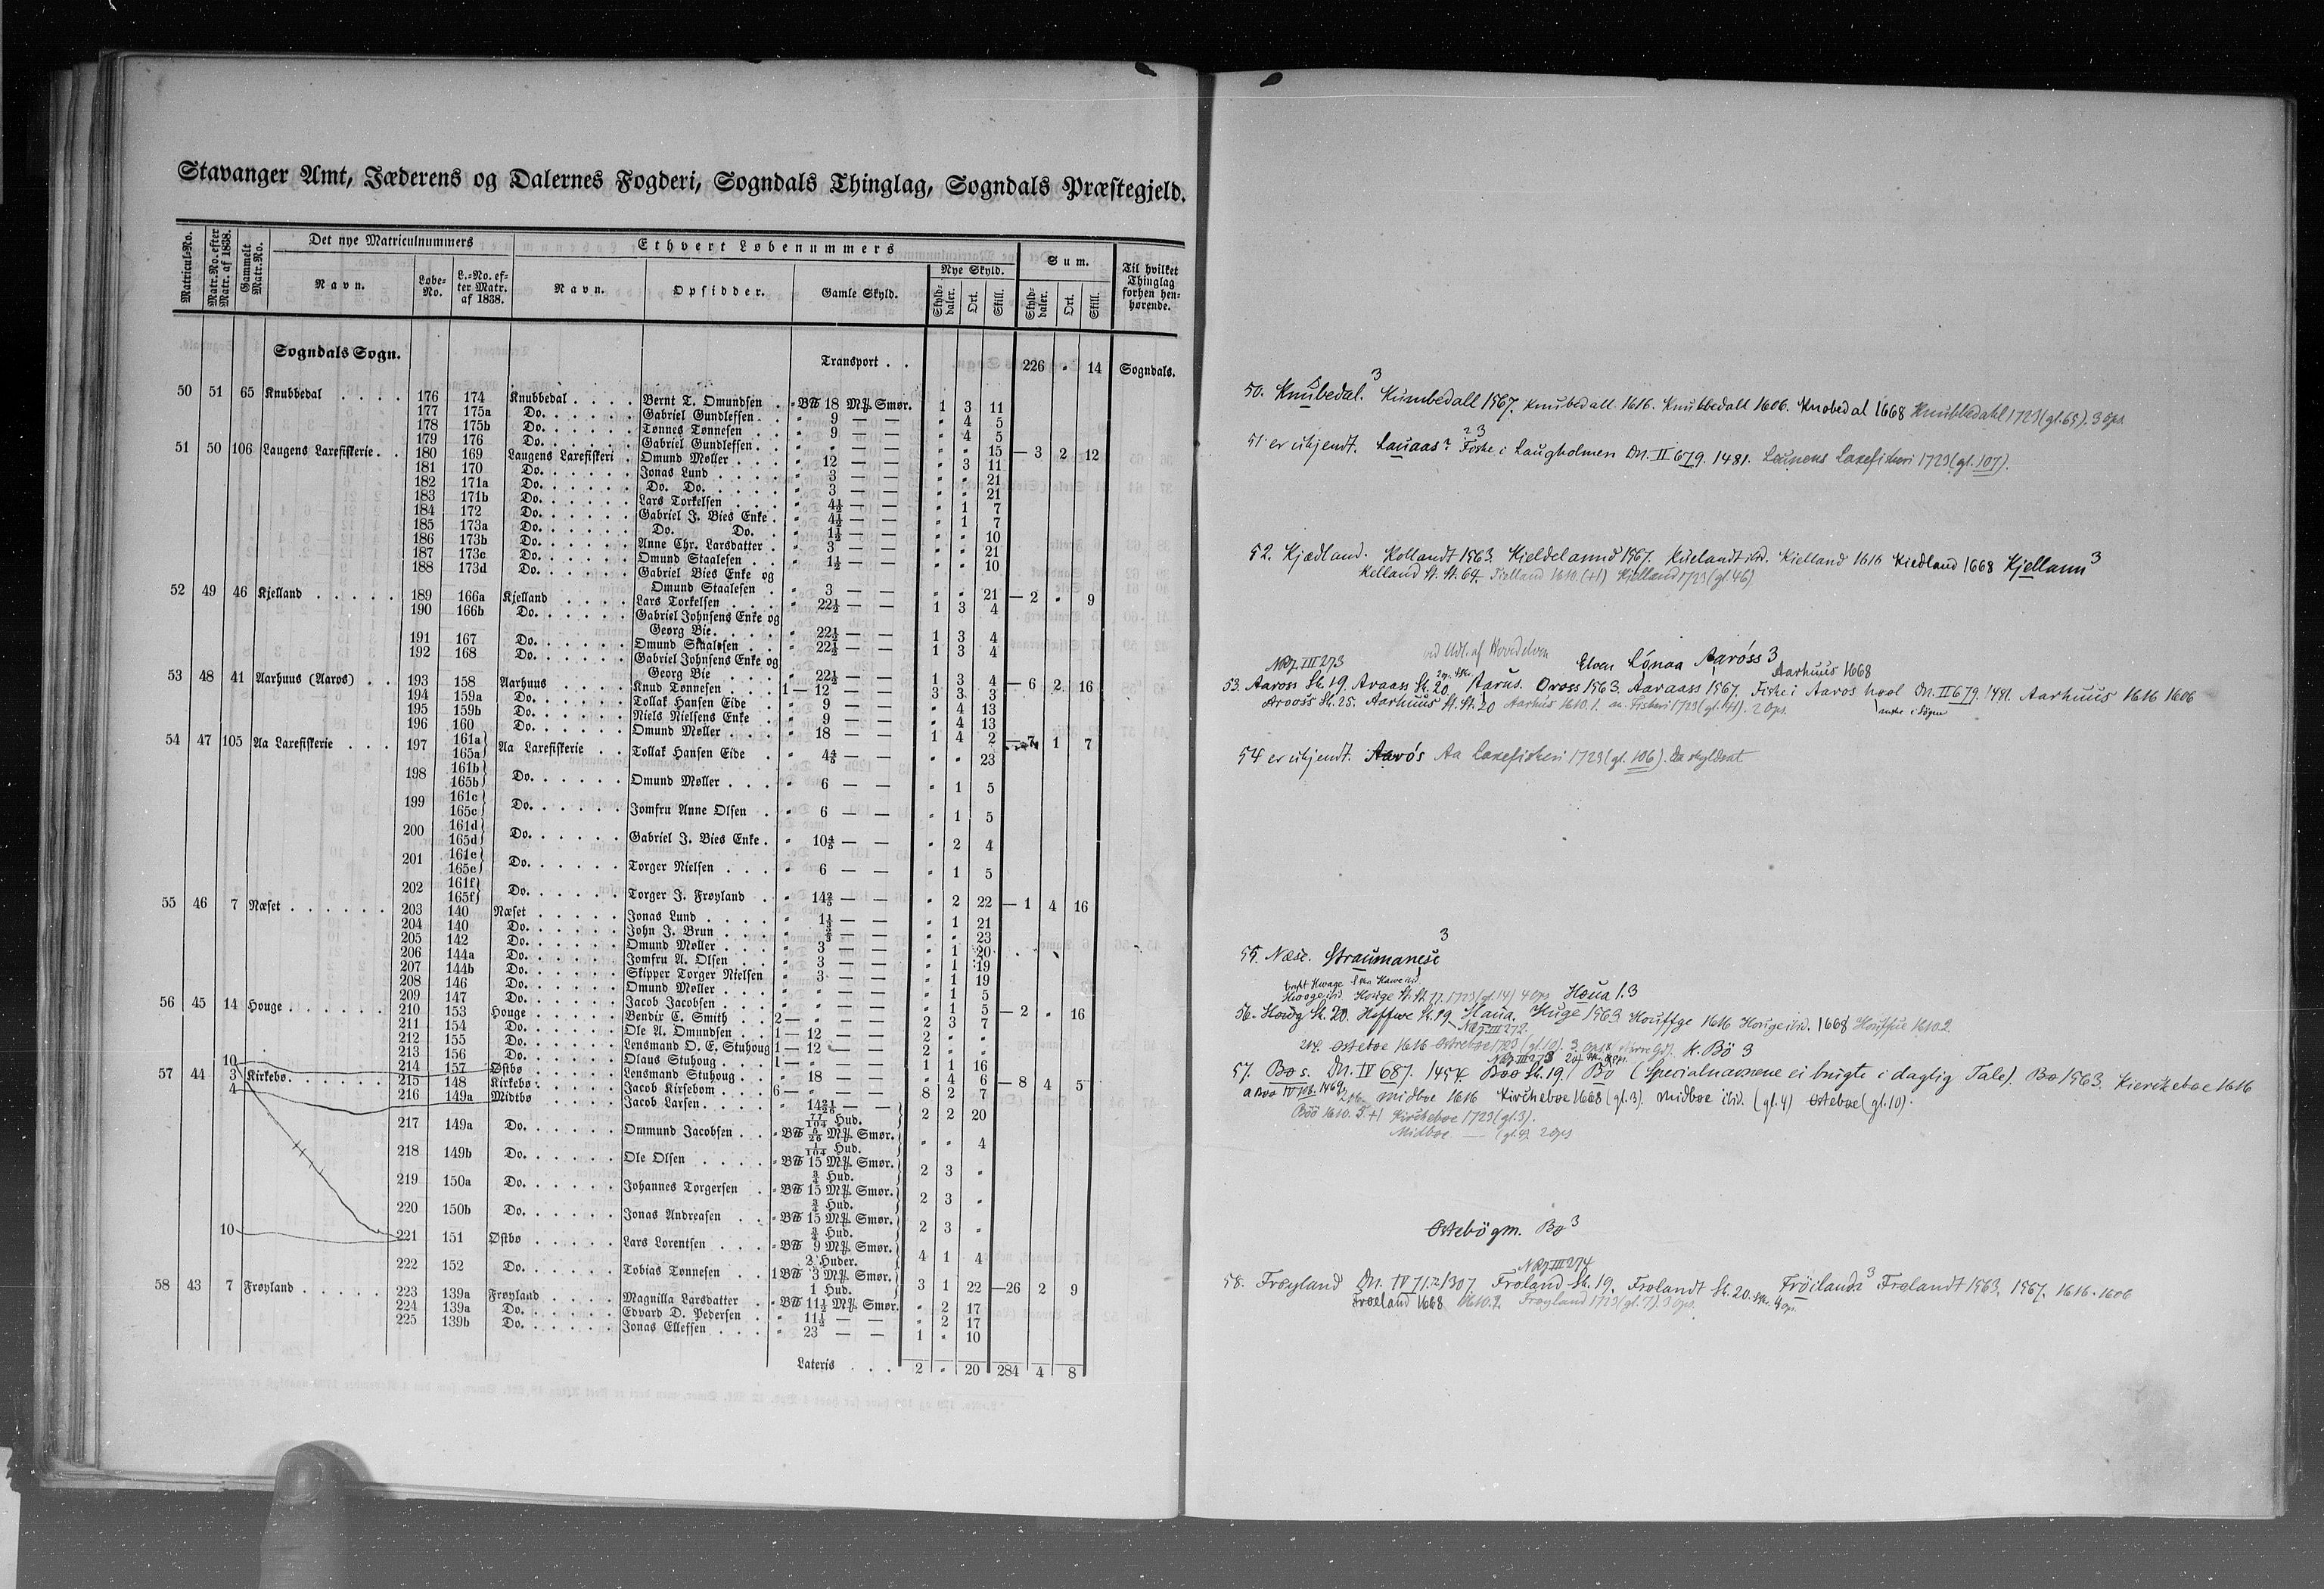 Stavanger Amt, Jæderens og Dalernes Fogderi, Sogndals Thinglag, Sogndals Præstegjeld.
Matricul-No. Matr.No. efter Matr. af 1838. Gammelt Matr.No. Det nye Matriculnummers Ethvert Løbenummers Sum. Til hvilket Thinglag forhen henhørende.
Navn. Løbe-No. L.-No. efter Matr. af 1838. Navn. Opsidder. Gamle Skyld. Nye Skyld. Skylddaler. Ort. Skill. Skylddaler. Ort. Skill.
Sogndals Sogn. Transport . . 226 " 14 Sogndals.
50 51 65 Knubbedal . . . . 176 174 Knubbedal . . . . Bernt T. Omundsen . " B℔ 18 Mk Smør. 1 3 11
177 175a Do. . . . . . Gabriel Gundlessen . . " 9 — — " 4 5
178 175b Do. . . . . . Tønnes Tønnesen . . " 9 — — " 4 5
179 176 Do. . . . . . Gabriel Gundlessen . . " " — — " " 15 — 3 2 12
51 50 106 Laugens Laxefiskerie . . 180 169 Laugens Laxefiskeri . Omund Møller . . . " 12 — — " 3 11
181 170 Do. . . . . . Jonas Lund . . . . " 3 — — " " 21
182 171a Do. . . . . . Do. Do. . . . . " 3 — — " " 21
183 171b Do. . . . . . Lars Torkelsen . . . " 4½ — — " 1 7
184 172 Do. . . . . . Gabriel J. Bies Enke . " 4½ — — " 1 7
185 173a Do. . . . . . Do. Do. . " 1½ — — " " 10
186 173b Do. . . . . . Anne Chr. Larsdatter . " 3 — — " " 21
187 173c Do. . . . . . Omund Staalesen . . " 1½ — — " " 10
188 173d Do. . . . . . Gabriel Bies Enke og
Omund Staalesen . " 3 — — " " 21 — 2 " 9
52 49 46 Kjelland . . . . . 189 166a Kjelland . . . . Lars Torkelsen . . . " 22½ — — 1 3 4
190 166b Do. . . . . . Gabriel Johnsens Enke og
Georg Bie. . . . " 22½ — — 1 3 4
191 167 Do. . . . . . Omund Staalesen . . " 22½ — — 1 3 4
192 168 Do. . . . . . Gabriel Johnsens Enke og
Georg Bie . . . . " 22½ — — 1 3 4 — 6 2 16
53 48 41 Aarhuus (Aaros) . . 193 158 Aarhuus . . . . . Knud Tønnesen . . . 1 — 12 — — 3 3 3
194 159a Do. . . . . . Tollak Hansen Eide . . " 9 — — " 4 13
195 159b Do. . . . . . Niels Nielsens Enke . . " 9 — — " 4 13
196 160 Do. . . . . . Omund Møller . . . " 18 — — 1 4 2 — 7 1 7
54 47 105 Aa Laxefiskerie . . . 197 161a 165a Aa Laxefiskerie . . Tollak Hansen Eide . " 4⅘ — — " " 23
198 161b 165b Do. . . . . . Omund Møller . . . " 6 — — " 1 5
199 161c 165c Do. . . . . . Jomfru Anne Olsen . " 6 — — " 1 5
200 161d 165d Do. . . . . . Gabriel J. Bies Enke . " 10⅘ — — " 2 4
201 161e 165e Do. . . . . . Torger Nielsen . . . " 6 — — " 1 5
202 161f 165f Do. . . . . . Torger J. Frøyland . . " 14⅖ — — " 2 22 — 1 4 16
55 46 7 Næset . . . . . . 203 140 Næset . . . . . Jonas Lund . . . . " 1⅕ — — " 1 21
204 140 Do. . . . . . John J. Brun . . . " ⅗ — — " " 23
205 142 Do. . . . . . Omund Møller . . . " 3 — — " 1 20
206 144a Do. . . . . . Jomfru A. Olsen . . " 3 — — " 1 19
207 144b Do. . . . . . Skipper Torger Nielsen " 3 — — " 1 19
208 146 Do. . . . . . Omund Møller . . . " " — — " 1 5
209 147 Do. . . . . . Jacob Jacobsen . . . " " — — " 1 5 — 2 " 16
56 45 14 Houge . . . . . . 210 153 Houge . . . . . Bendix C. Smith . . 2 — " — — 2 3 7
211 154 Do. . . . . . Ole A. Omundsen . . 1 — 12 — — 2 " "
212 155 Do. . . . . . Lensmand O. E. Stuhoug 1 — 12 — — 2 " "
213 156 Do. . . . . . Olaus Stuhoug . . . 1 — " — — 1 1 16
10 214 157 Østbø . . . . . Lensmand Stuhoug . . " 18 — — " 4 6 — 8 4 5
57 44 3 Kirkebø. . . . . . 215 148 Kirkebø . . . . . Jacob Kirkebom . . . 6 — " — — 8 2 7
4 216 149a Midtbø . . . . . Jacob Larsen . . . .
77/104 Hud. 2 2 20
217 149a Do. . . . . . Ommund Jacobsen . . " B℔ 5/26 Mk Smør. 1/104 Hud. " " 4
218 149b Do. . . . . . Ole Olsen . . . . " B℔ 15 Mk Smør. ¾ Hud. 2 3 "
219 150a Do. . . . . . Johannes Torgersen . " B℔ 15 Mk Smør. ¾ Hud. 2 3 "
220 150b Do. . . . . . Jonas Andreasen . . " B℔ 15 Mk Smør. ¾ Hud. 2 3 "
10 221 151 Østbø . . . . . Lars Lorentsen . . . " B℔ 9 Mk Smør. 2 Huder. 4 1 4
222 152 Do. . . . . . Tobias Tønnesen . . 1 B℔ 3 Mk Smør. 1 Hud. 3 1 22 — 26 2 9
58 43 7 Frøyland . . . . . 223 139a Frøyland . . . . Magnilla Larsdatter . . " B℔ 11½ Mk Smør. " 2 17
224 139a Do. . . . . . Edvard D. Pedersen . " 11½ — — " 2 17
225 139b Do. . . . . . Jonas Ellefsen . . . " 23 — — 1 " 10
Lateris . . . 2 " 20 284 4 8
50. Knubedal. 3 Kumbedall 1567. Knubedall 1616. Knubbedall 1606. Knobedal 1668 Knubbedahl 1723 (gl. 65). 3 Ops.
51 er ukjendt. Lauaas? 23 Fiske i Laugholmen Dn. II 679. 1481. Laugens Laxefiskeri 1723 (gl. 107).
52. Kjædland. Kollandt 1563. Kieldelannd 1567. Kielandt ibd. Kielland 1616 Kiedland 1668 Kjellann 3
Kelland St. St. 64. Kielland 1610. (+1) Kielland 1723 (gl. 46)
NRJ. III 273 Elven Lónaa Aaróss 3
Aarhuus 1668
53. Aaross Sk. 19. Araass Sk. 20. Aarus. Oross 1563. Aaraass 1567. Fiske i Aaros hool Dn. II 679. 1481. Aarhuus 1616 1606
Arooss Sk. 25. Aarhuus St. St. 20 Aarhus 1610. 1. 1723 (gl. 41). 2 Ops.
54 er ukjendt. Aarós Aa Laxefiskeri 1723 (gl. 106).
55. Næse. Straumanese 3
Houge St. St. 77. 1723 (gl. 14) 4 Ops Hæua 1. 3
56. Howg Sk. 20. Hoffwe Sk. 19 Haua. Huge 1563. Houffge 1616 Houge ibd. 1668 Houffue 1610. 2.
NRJ. III 272.
Østeboe 1616 K. Bö 3
57. Bø s. Dn. IV 687. 1454. Boo Sk. 19. Bö (Specialnavnene ei brugte i daglig Tale). Bø 1563. Kierckeboe 1616
Midboe 1616 Kircheboe 1668 (gl. 3). Midboe ibid. (gl. 4) Østeboe (gl. 10).
Böö 1610. 5 +1 Kircheboe 1723 (gl. 3).
Midboe — (gl. 4) 2 Ops
Østebö gm. Bø 3
NRJ. III 274
58. Frøyland Dn. IV 71, 72/1307. Froland Sk. 19. Frolandt Sk. 20. Fröilandt 3 Frølandt 1563. 1567. 1616. 1606
Frøeland 1668 1610. 2. Frøyland 1723 (gl. 7). 3 Ops.